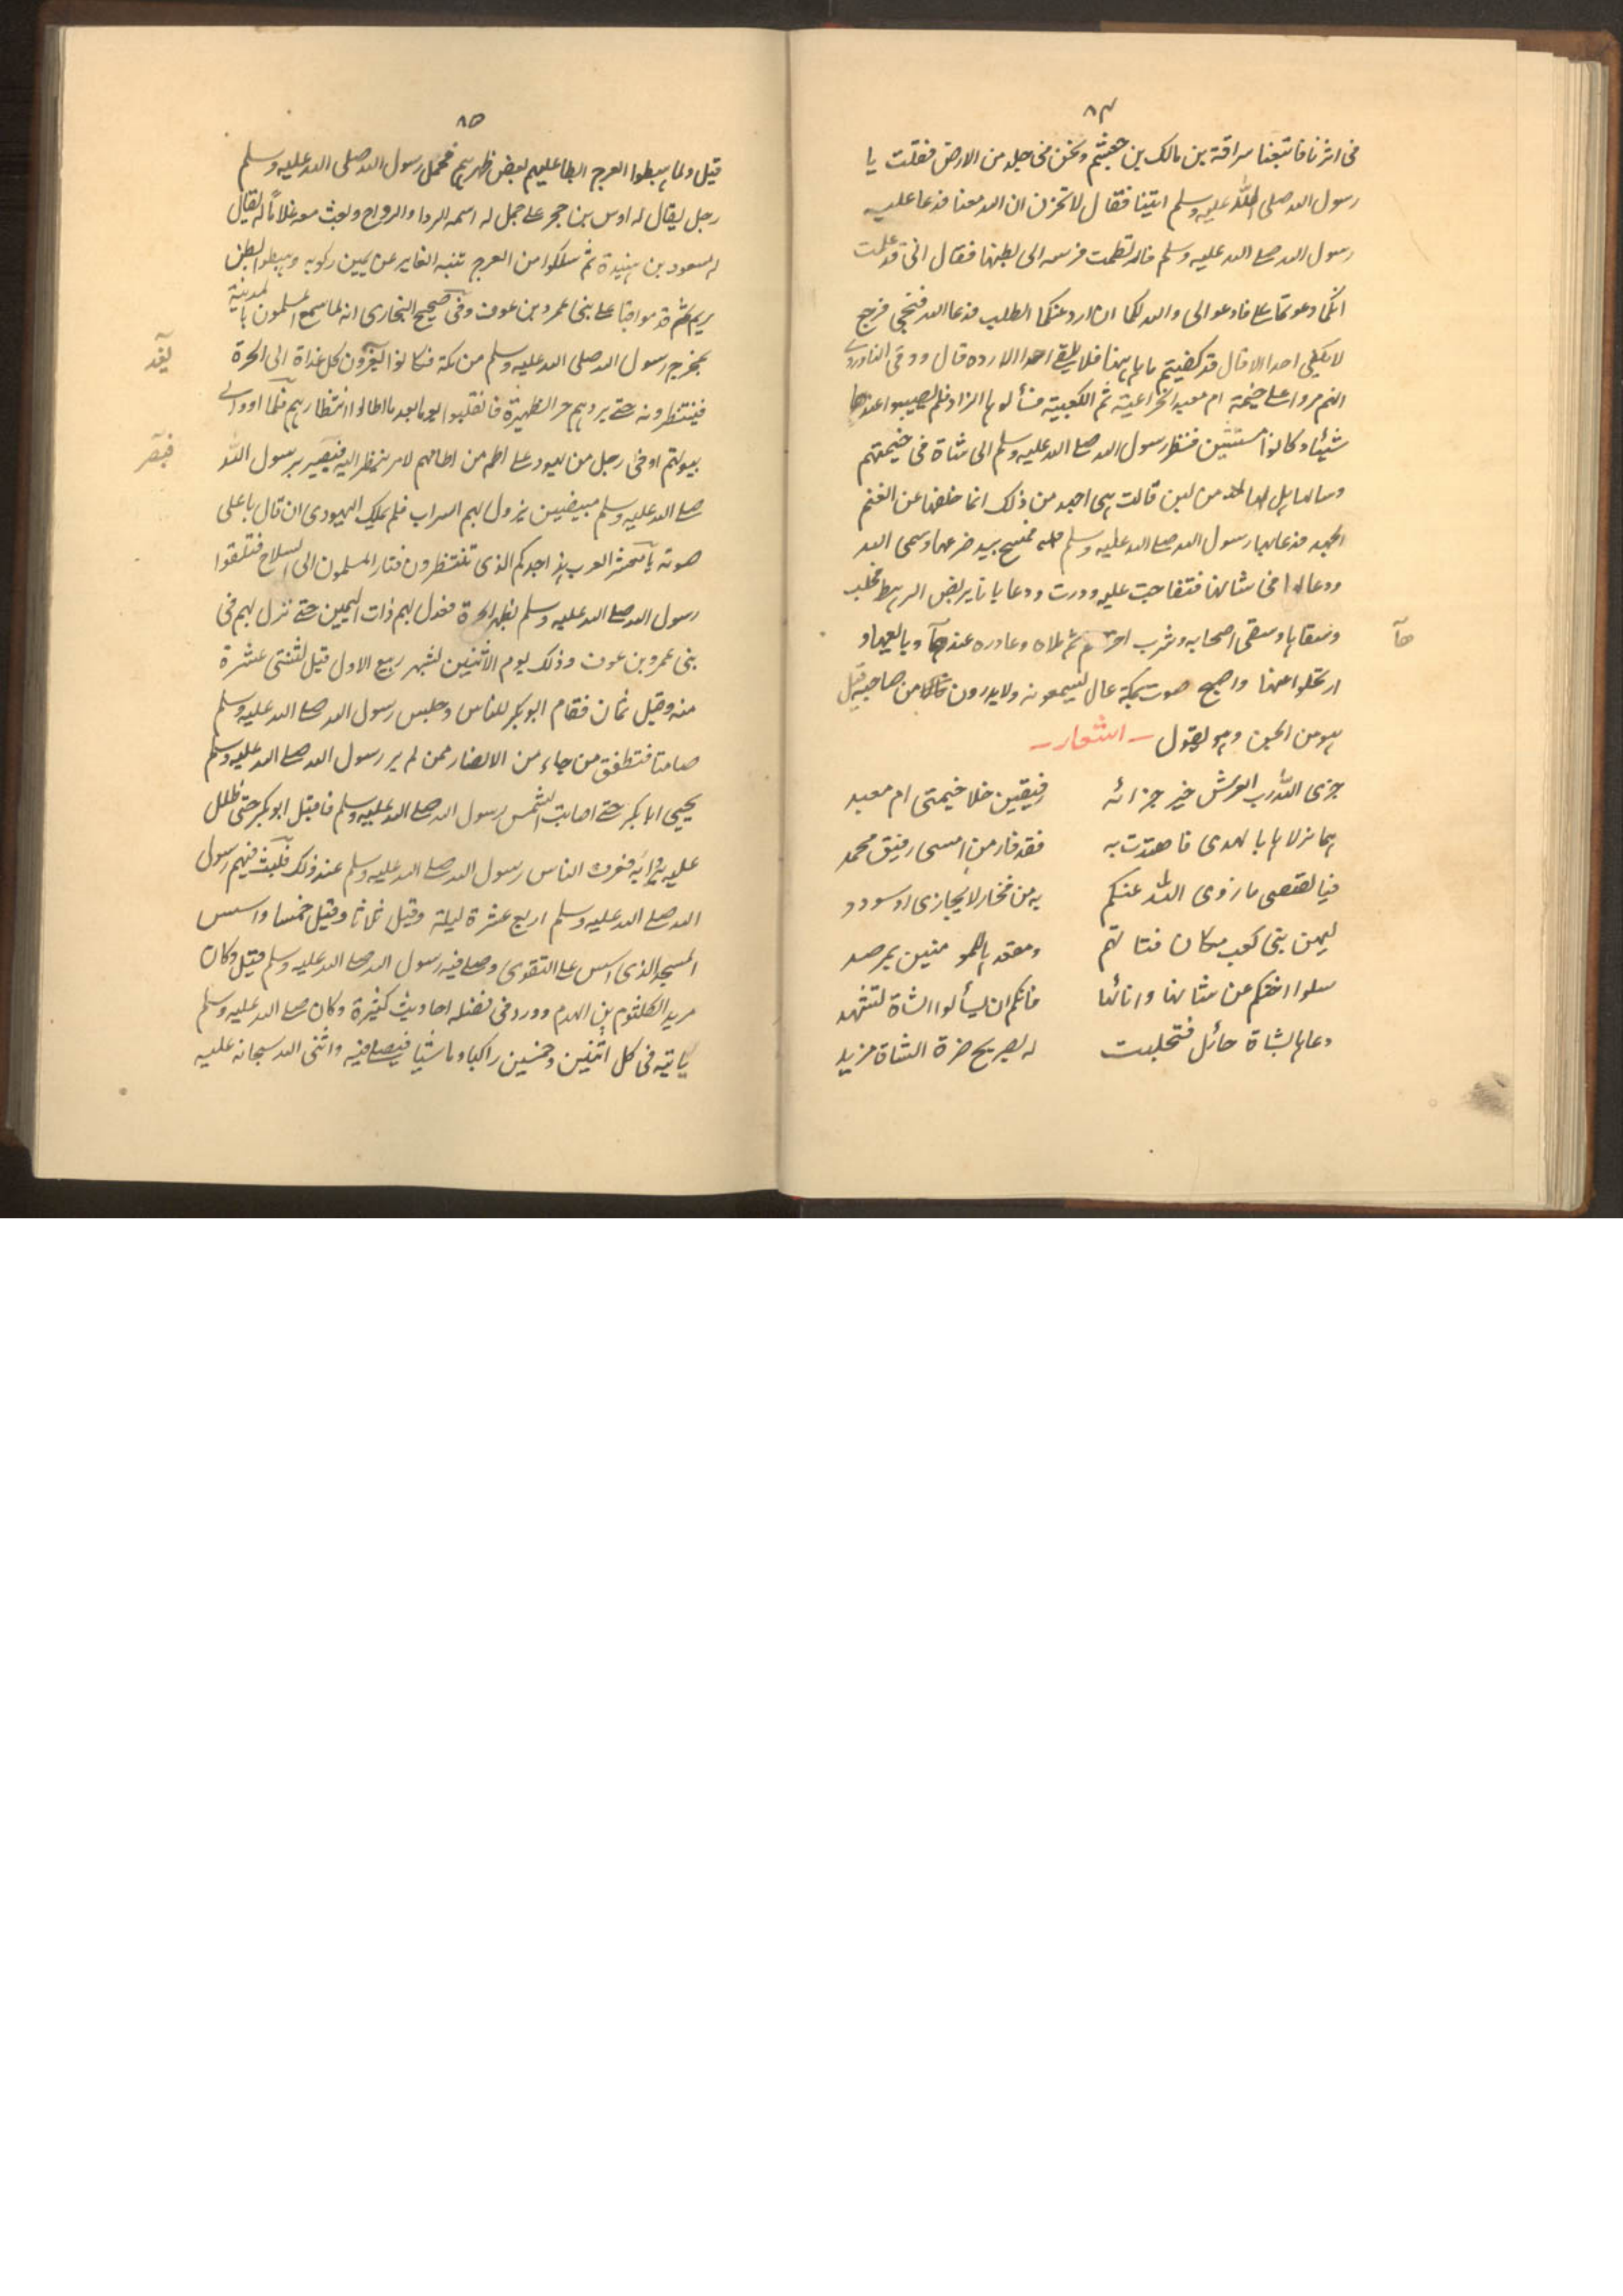 ٨٤
فى اثرنا فاتبعنا سراقة بن مالك بن جعشم ونحن فى جلد من الارض فقلت يا
رسول الله صلى الله عليه وسلم اتينا فقال لا تحزن ان الله معنا فدعا عليه
رسول الله صلے الله عليه وسلم فارتطمت فرسه الى بطنها فقال انى قد علمت
انكما دعوتما علے فادعوا لى والله لكما ان ارد عنكما الطلب فدعا الله فنجى فرجع
لا يلقى احدا الا قال قد كفيتم ما ههنا فلا يلقے احدا الا رده قال ووقى
انهم مروا علے خيمة ام معبد الخزاعية ثم الكعبية فسألوها الزاد فلم يصيبوا عندها
شيئا وكانوا مسنتين فنظر رسول الله صلے الله عليه وسلم الى شاة فى خيمتهم
وسالها هل لها من لبن قالت هى اجهد من ذلك انما خلفها عن الغنم
الجهد فدعا بها رسول الله صلے الله عليه وسلم فمسح بيده ضرعها وسمى الله
ودعا لها فى شاتها فتفاجت عليه ودرت ودعا باناء يربض الرهط فحلب
وسقاها وسقى اصحابه وشرب اخرهم ثم ملاه وغادره عندها وبايعها و
هآ
ارتحلوا عنها واصبح صوت بمكة عال يسمعونه ولا يدرون من صاحبه قيل
هو من الجن وهو يقول ـ اشعار ـ
جزى الله رب العرش خير جزائه رفيقين حلا خيمتى ام معبد
هما نزلاها بالهدى فاهتدت به فقد فاز من امسى رفيق محمد
فيا لقصى ما زوى الله عنكم به من فخار لا يجازى وسودد
ليهن بنى كعب مكان فتاتهم ومقعدها للمومنين بمرصد
سلوا اختكم عن شاتها وانائها فانكم ان تسألوا الشاة تشهد
دعاها بشاة حائل فتحلبت له بصريح ضرة الشاة مزيد
٨٥
قيل ولما هبطوا العرج ابطا عليهم بعض ظهرهم فحمل رسول الله صلى الله عليه وسلم
رجل يقال له اوس بن حجر علے جمل له اسمه الردا والرواح وبعث معه غلاما له يقال
له مسعود بن هنيدة ثم سلكوا من العرج ثنية الغاير عن يمين ركوبه وهبطوا بطن
ريم ثم قدموا قبا علے بنى عمرو بن عوف وفى صحيح البخارى انه لما سمع المسلمون بالمدينة
بمخرج رسول الله صلى الله عليه وسلم من مكة فكانوا يغدون كل غداة الى الحرة
لغد
فينتظرونه حتے يردهم حر الظهيرة فانقلبوا يوما بعد ما اطالوا انتظارهم فلما اووا الے
بيوتهم اوفى رجل من يهود علے اطم من اطامهم لامر ينظر اليه فبصر برسول الله
فبصر
صلے الله عليه وسلم مبيضين يزول بهم السراب فلم يملك اليهودى ان قال باعلى
صوته يا معشر العرب هذا جدكم الذى تنتظرون فثار المسلمون الى السلاح فتلقوا
رسول الله صلے الله عليه وسلم بظهر الحرة فعدل بهم ذات اليمين حتے نزل بهم فى
بنى عمرو بن عوف وذلك يوم الاثنين لشهر ربيع الاول قيل لثنتى عشرة
منه وقيل ثمان فقام ابو بكر للناس وجلس رسول الله صلے الله عليه وسلم
صامتا فتطفق من جاء من الانصار ممن لم ير رسول الله صلے الله عليه وسلم
يحيى ابا بكر حتے اصابت الشمس رسول الله صلے الله عليه وسلم فاقبل ابو بكر حتى ظلل
عليه بردائه فعرف الناس رسول الله صلے الله عليه وسلم عند ذلك فلبث فيهم رسول
الله صلے الله عليه وسلم اربع عشرة ليلة وقيل ثلاثا وقيل خمسا واسس
المسجد الذى اسس علے التقوى وصلے فيه رسول الله صلے الله عليه وسلم قيل وكان
مربد الكلثوم بن الهدم وورد فى فضله احاديث كثيرة وكان صلے الله عليه وسلم
ياتيه فى كل اثنين وخميس راكبا وماشيا فيصلے فيه واثنى الله سبحانه عليه